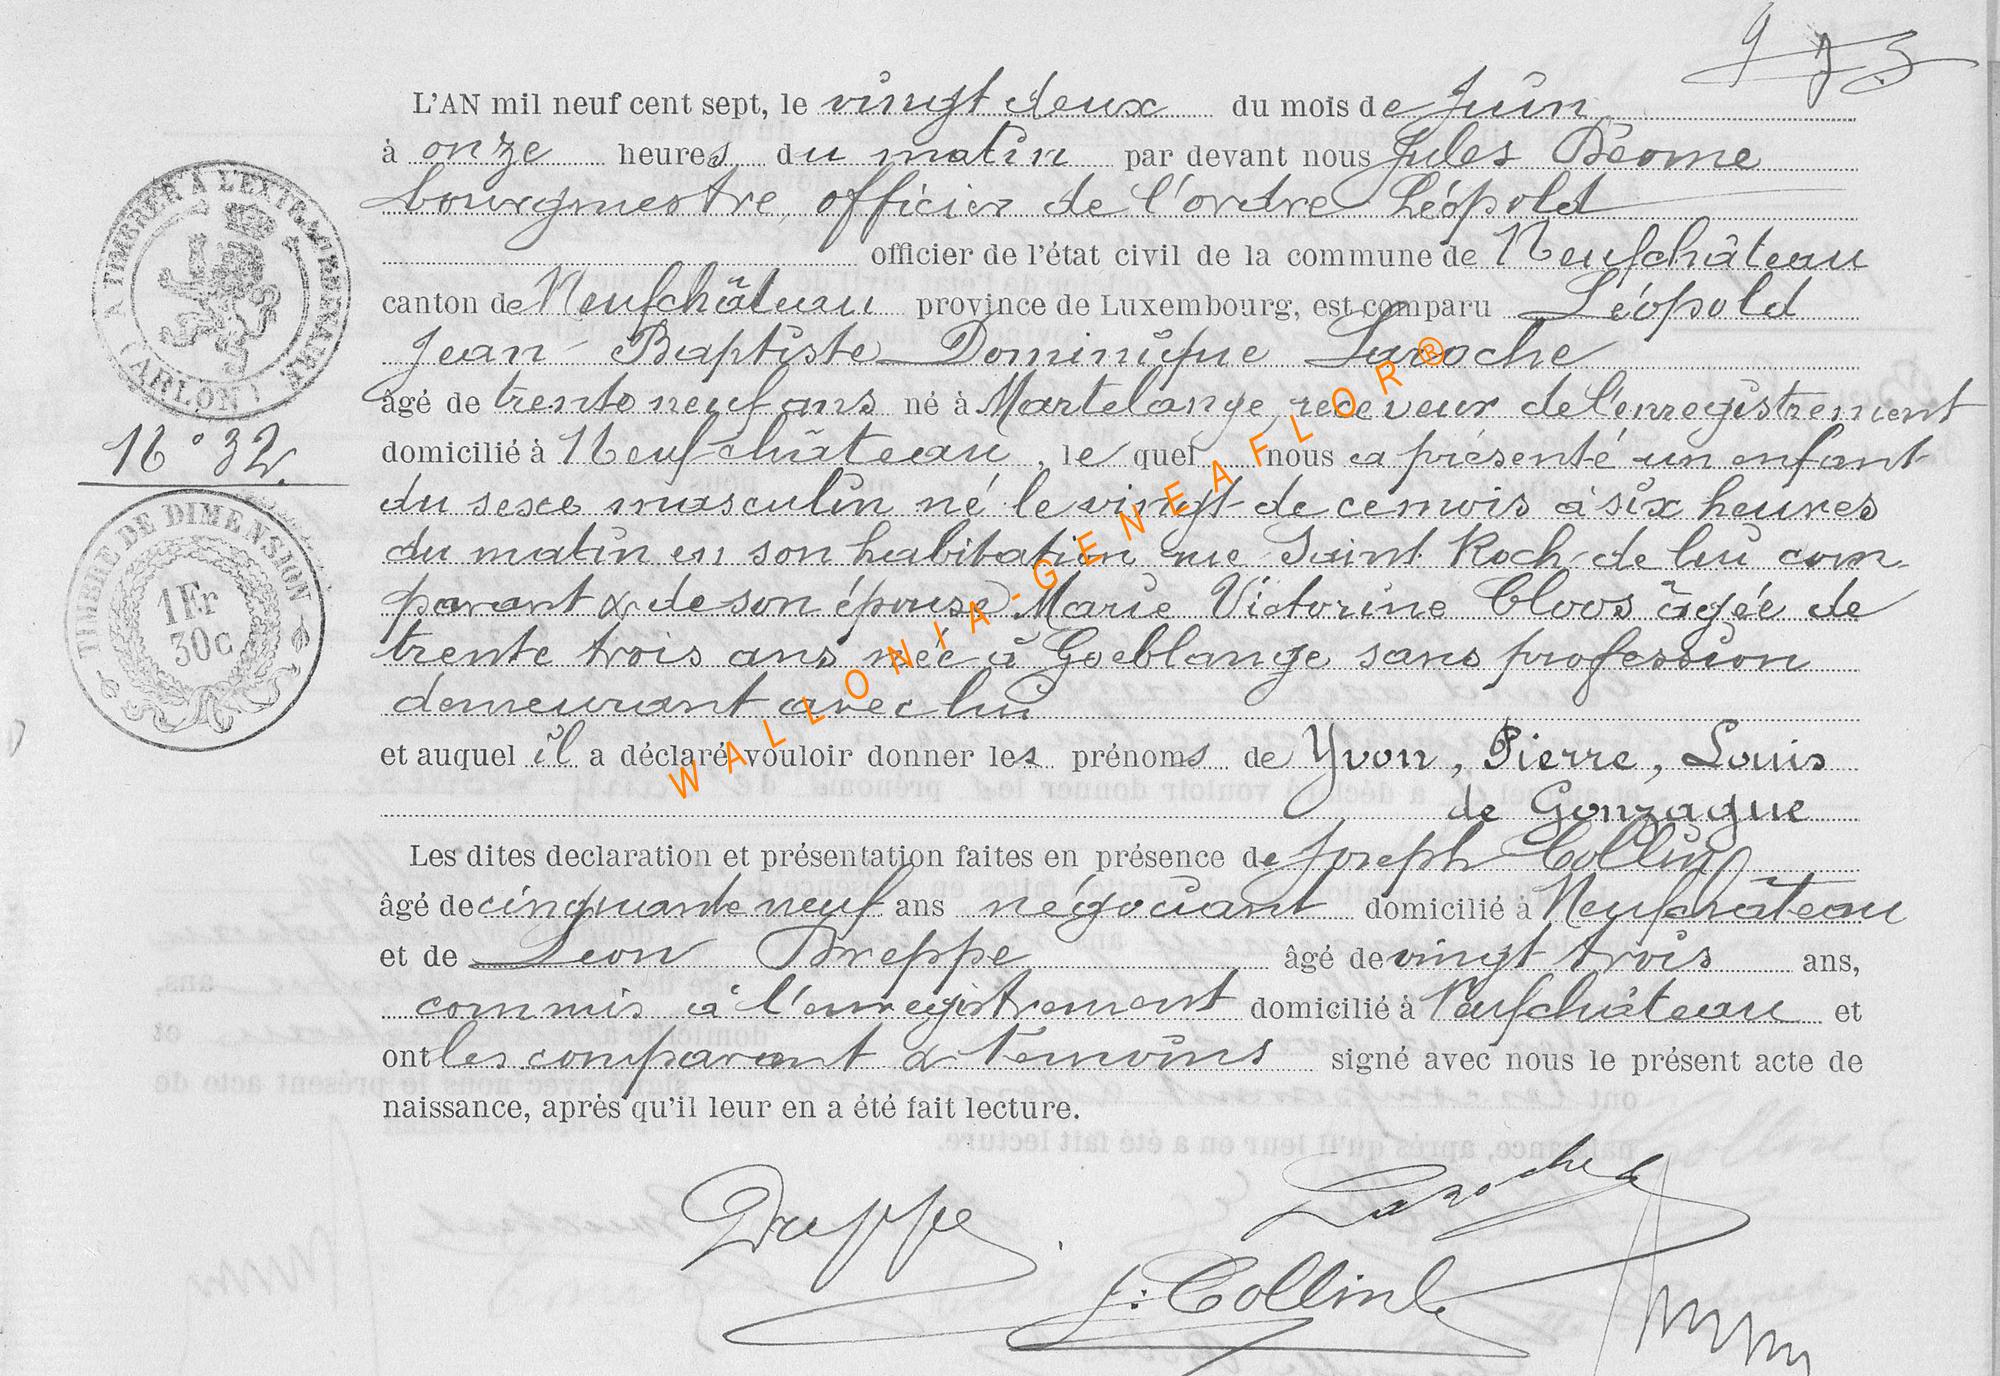 973
L'AN mil neuf cent sept, le vingt deux du mois de Juin
à onze heures du matin par devant nous Jules
bourgmestre, officier de l'ordre Léopold
officier de l'état civil de la commune de Neufchâteau
canton de Neufchâteau province de Luxembourg, est comparu Léopold
Jean Baptiste Dominique Laroche
âgé de trente neuf ans né à Martelange, receveur de l'enregistrement
domicilié à Neufchâteau, le quel nous a présenté un enfant
du sexe masculin né le vingt de ce mois à six heures
du matin en son habitation rue Saint Roch de lui com
parant & de son épouse Marie Victorine Cloos âgée de
trente trois ans née à Goeblange sans profession
demeurant avec lui
et auquel il a déclaré vouloir donner les prénoms de Yvon, Pierre, Louis
de Gonzague
Les dites declaration et présentation faites en présence de Joseph Collin
âgé de cinquante neuf ans négociant domicilié à Neufchâteau
et de Leon Dreppe âgé de vingt trois ans,
commis à l'enregistrement domicilié à Neufchâteau et
ont les comparant & témoins signé avec nous le présent acte de
naissance, après qu'il leur en a été fait lecture.
Dreppe Laroche
J. Collin
A TIMBRER À L'EXTRAORDINAIRE
(ARLON)
N° 32.
TIMBRE DE DIMENSION
1Fr
30c
WALLONIA-GENEAFLOR®